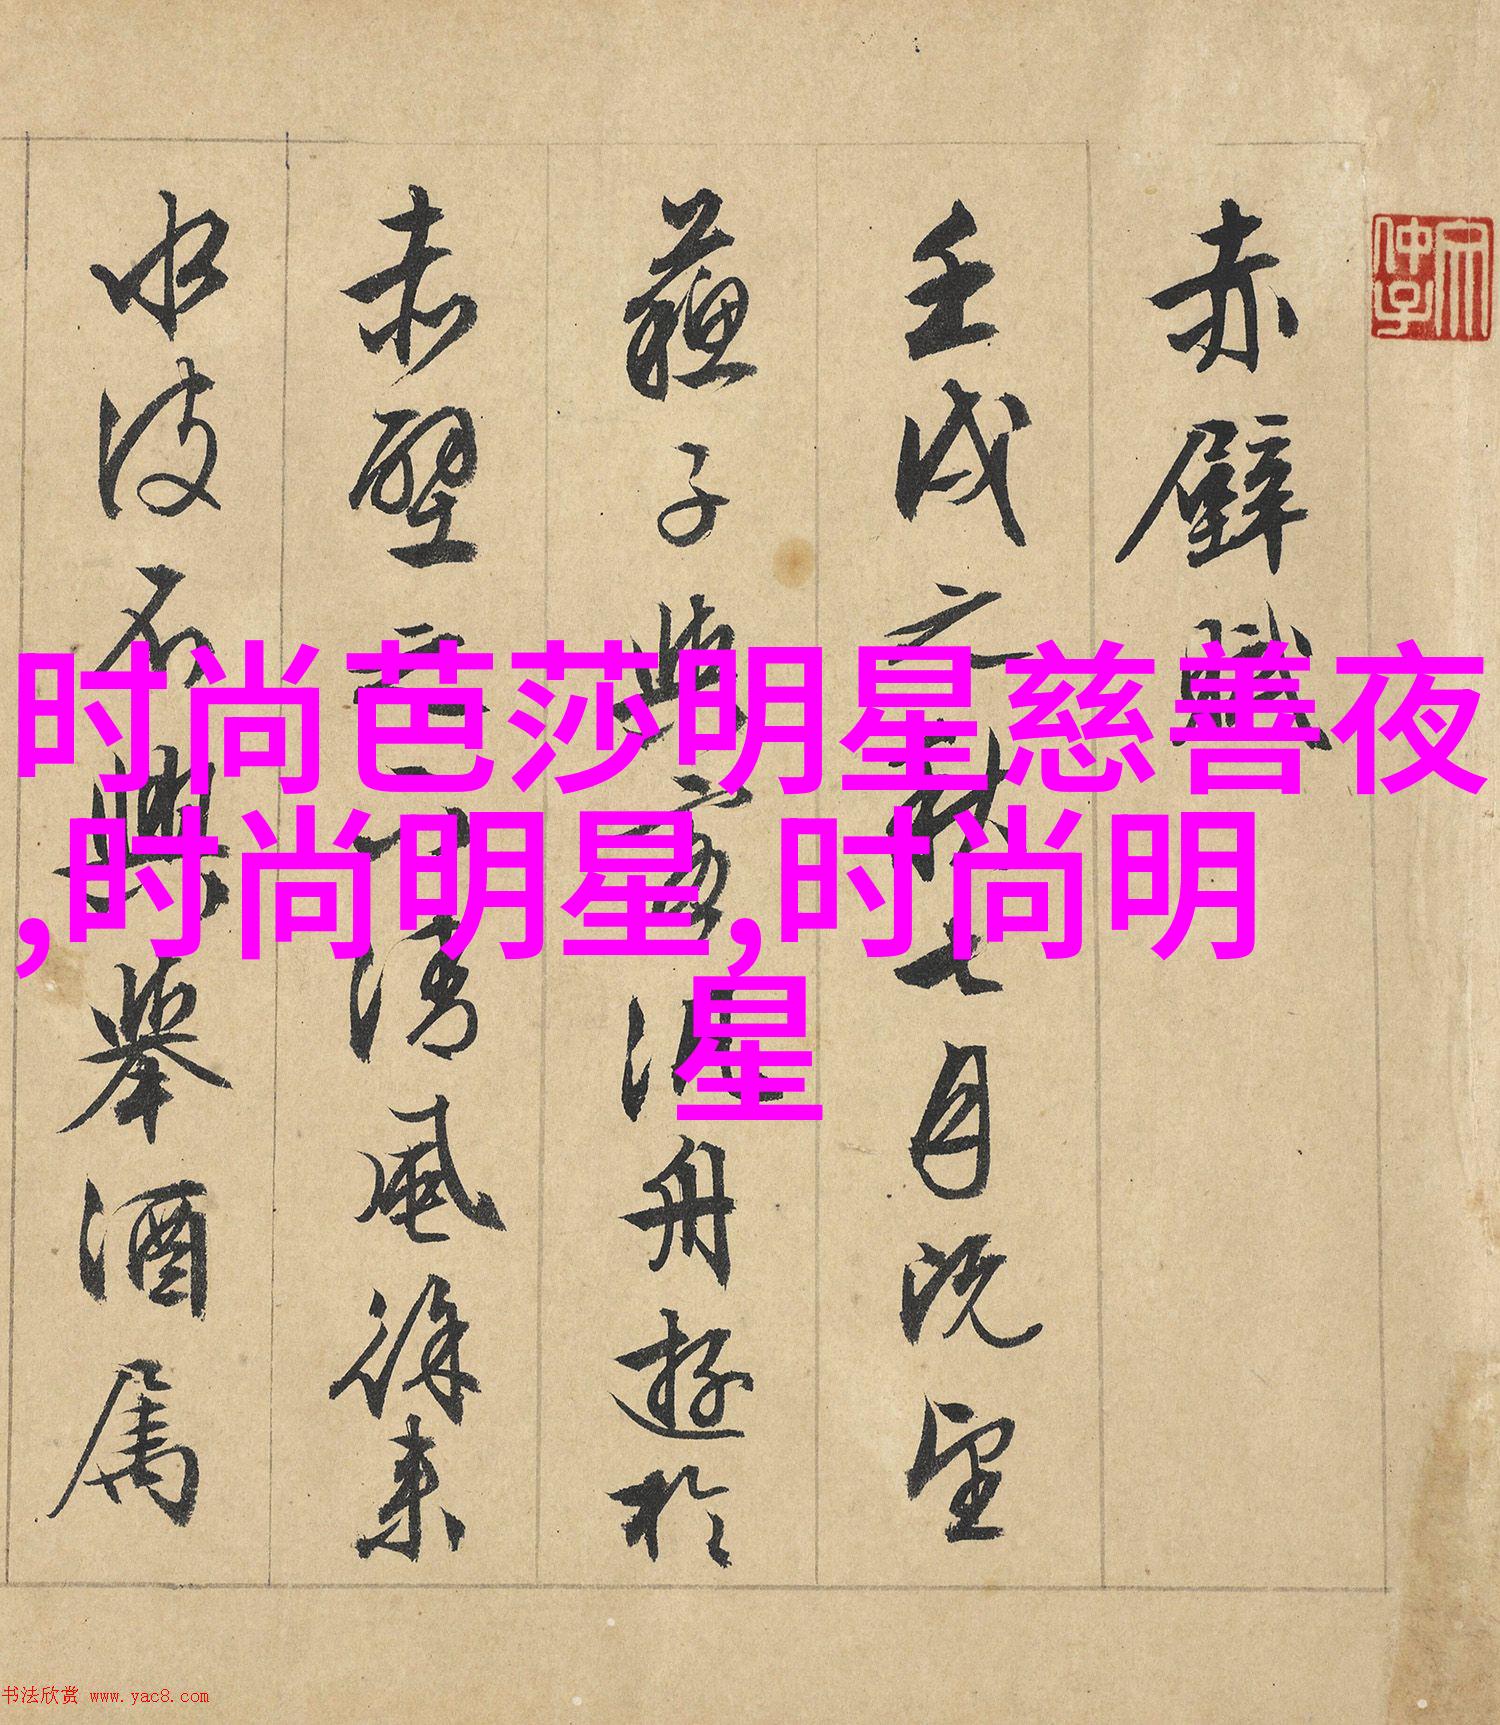 赤壁賦
壬戌之秋七月既望
蘇子與客泛舟遊於
赤壁之下清風徐來
水波不興舉酒屬
时尚芭莎明星慈善夜
,时尚明星,时尚明
星
书法欣赏 www.yac8.com